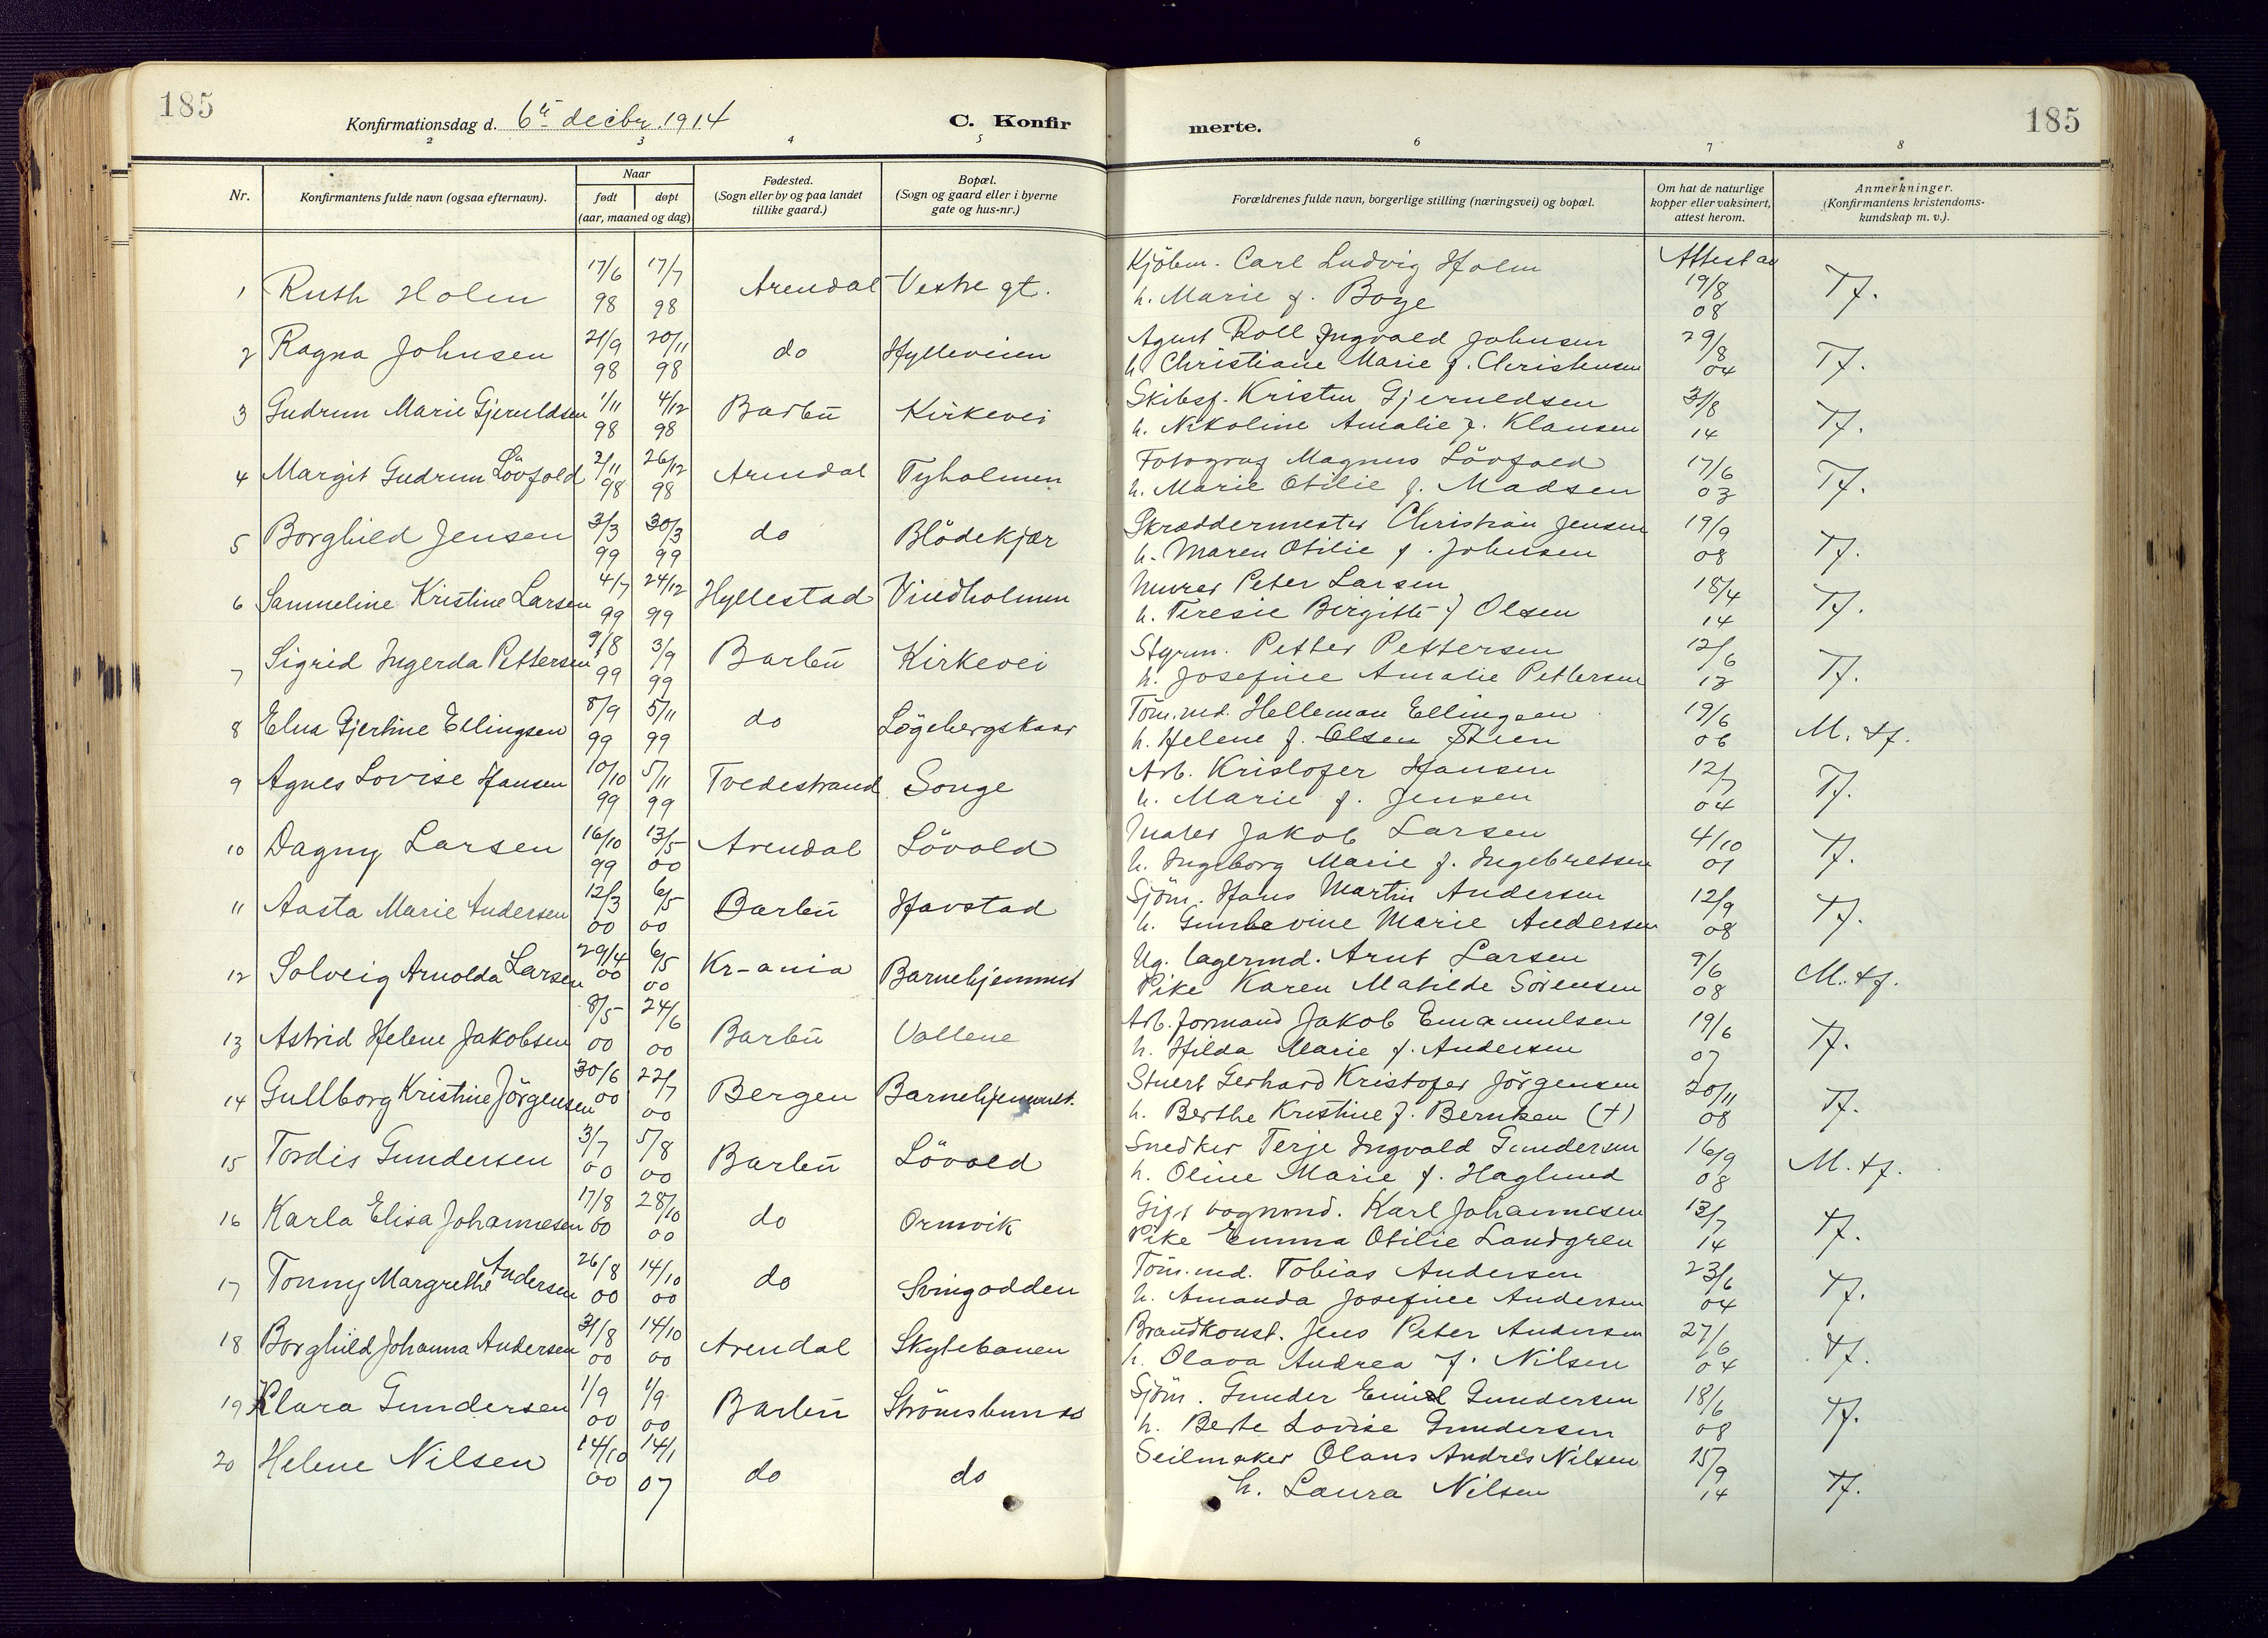 185
Konfirmationsdag d. 6te decbr. 1914
C. Konfir
merte.
185
2 3 4 5 6 7 8
Nr.
Konfirmantens fulde navn (ogsaa efternavn).
Naar
født
døpt
(aar, maaned og dag)
Fødested.
(Sogn eller by og paa landet
tillike gaard.)
Bopæl.
(Sogn og gaard eller i byerne
gate og hus-nr.)
Forældrenes fulde navn, borgerlige stilling (næringsvei) og bopæl.
Om hat de naturlige
kopper eller vaksinert,
attest herom.
Anmerkninger.
(Konfirmantens kristendoms-
kundskap m. v.).
1 Ruth Holm 17/6 98 17/7 98 Arendal Vestre gt. Kjöbm. Carl Ludvig Holm Attest av 19/8 08 Tf.
h. Marie f. Boye
2 Ragna Johnsen 21/9 98 20/11 98 do Hylleveien Agent Roll Ingvald Johnsen 29/8 04 Tf.
h. Christiane Marie f. Christensen
3 Gudrun Marie Gjeruldsen 1/11 98 4/12 98 Barbu Kirkevei Skibsf. Kristen Gjeruldsen 31/8 14 Tf.
h. Nikoline Amalie f. Klausen
4 Margit Gudrun Lövfold 2/11 98 26/12 98 Arendal Tyholmen Fotograf Magnus Lövfold 17/6 03 Tf.
h. Marie Otilie f. Madsen
5 Borghild Jensen 3/3 99 30/3 99 do Blödekjær Skræddermester Christian Jensen 19/9 08 Tf.
h. Maren Otilie f. Johnsen
6 Sammeline Kristine Larsen 4/7 99 24/12 99 Hyllestad Vindholmen Murer Peter Larsen 18/4 14 Tf.
h. Teresie Birgitte f Olsen
7 Sigrid Ingerda Pettersen 9/8 99 3/9 99 Barbu Kirkevei Styrm. Petter Pettersen 12/6 13 Tf.
h. Josefine Amalie Pettersen
8 Elna Gjertine Ellingsen 8/9 99 5/11 99 do Lögebergskaar Töm.md. Helleman Ellingsen 19/6 06 M. tf.
h. Helene f. Olsen Steen
9 Agnes Lovise Hansen 10/10 99 5/11 99 Tvedestrand Songe Arb. Kristofer Hansen 12/7 04 Tf.
h. Marie f. Jensen
10 Dagny Larsen 16/10 99 13/5 00 Arendal Lövold Maler Jakob Larsen 4/10 01 Tf.
h. Ingeborg Marie f. Ingebretsen
11 Aasta Marie Andersen 12/3 00 6/5 00 Barbu Havstad Sjöm. Hans Martin Andersen 12/9 08 Tf.
h. Marie Andersen
12 Solveig Arnolda Larsen 29/4 00 6/5 00 Kr-ania Barnehjemmet Ug. lagermd. Arnt Larsen 9/6 08 M. tf.
Pike Karen Matilde Sörensen
13 Astrid Helene Jakobsen 8/5 00 24/6 00 Barbu Vollene Arb. formand Jakob Emanuelsen 19/6 07 Tf.
h. Hilda Marie f. Andersen
14 Gullborg Kristine Jörgensen 30/6 00 22/7 00 Bergen Barnehjemmet. Stuert Gerhard Kristofer Jörgensen 20/11 08 Tf.
h. Berthe Kristine f. Berntsen (+)
15 Tordis Gundersen 3/7 00 5/8 00 Barbu Lövold Snedker Terje Ingvald Gundersen 16/9 08 M. tf.
h. Oline Marie f. Haglund
16 Karla Elisa Johannesen 17/8 00 28/10 00 do Ormvik Gift vognmd. Karl Johannesen 13/7 14 Tf.
Pike Emma Otilie Landgren
17 Tonny Margrethe Andersen 26/8 00 14/10 00 do Svingodden Töm.md. Tobias Andersen 23/6 04 Tf.
h. Amanda Josefine Andersen
18 Borghild Johanna Andersen 31/8 00 14/10 00 Arendal Skytebanen Brandkonst. Jens Peter Andersen 27/6 04 Tf.
h. Olava Andrea f. Nilsen
19 Klara Gundersen 1/9 00 1/9 00 Barbu Strömsbunes Sjöm. Gunder Emil Gundersen 18/6 08 Tf.
h. Berte Lovise Gundersen
20 Helene Nilsen 14/10 00 14/1 07 do do Seilmaker Olaus Andrés Nilsen 15/9 14 Tf.
h. Laura Nilsen